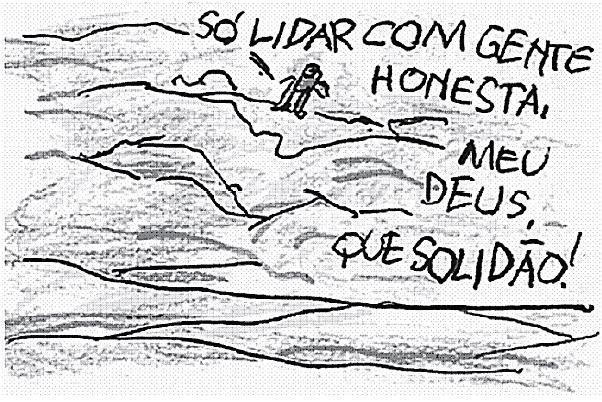 SÓ LIDAR COM GENTE
HONESTA.
MEU
DEUS,
QUE SOLIDÃO!